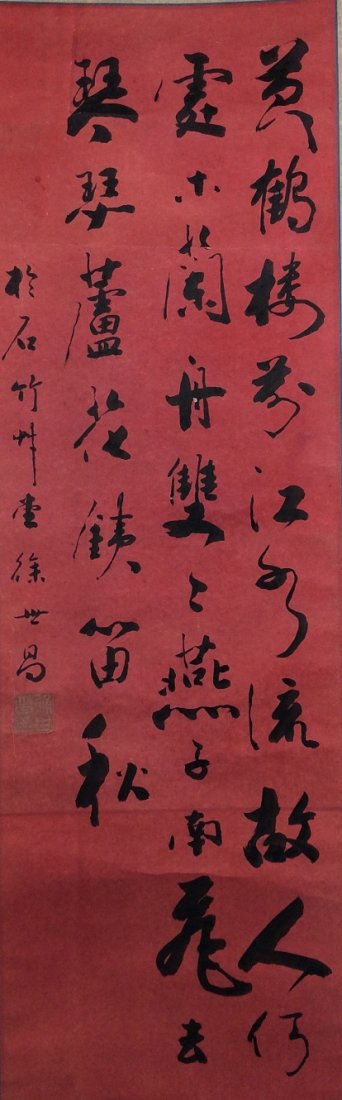 黄鶴楼前江水流故人何
處木蘭舟雙〻燕子南飛去
琴瑟蘆花鐵笛秋
於石竹艸堂徐世昌